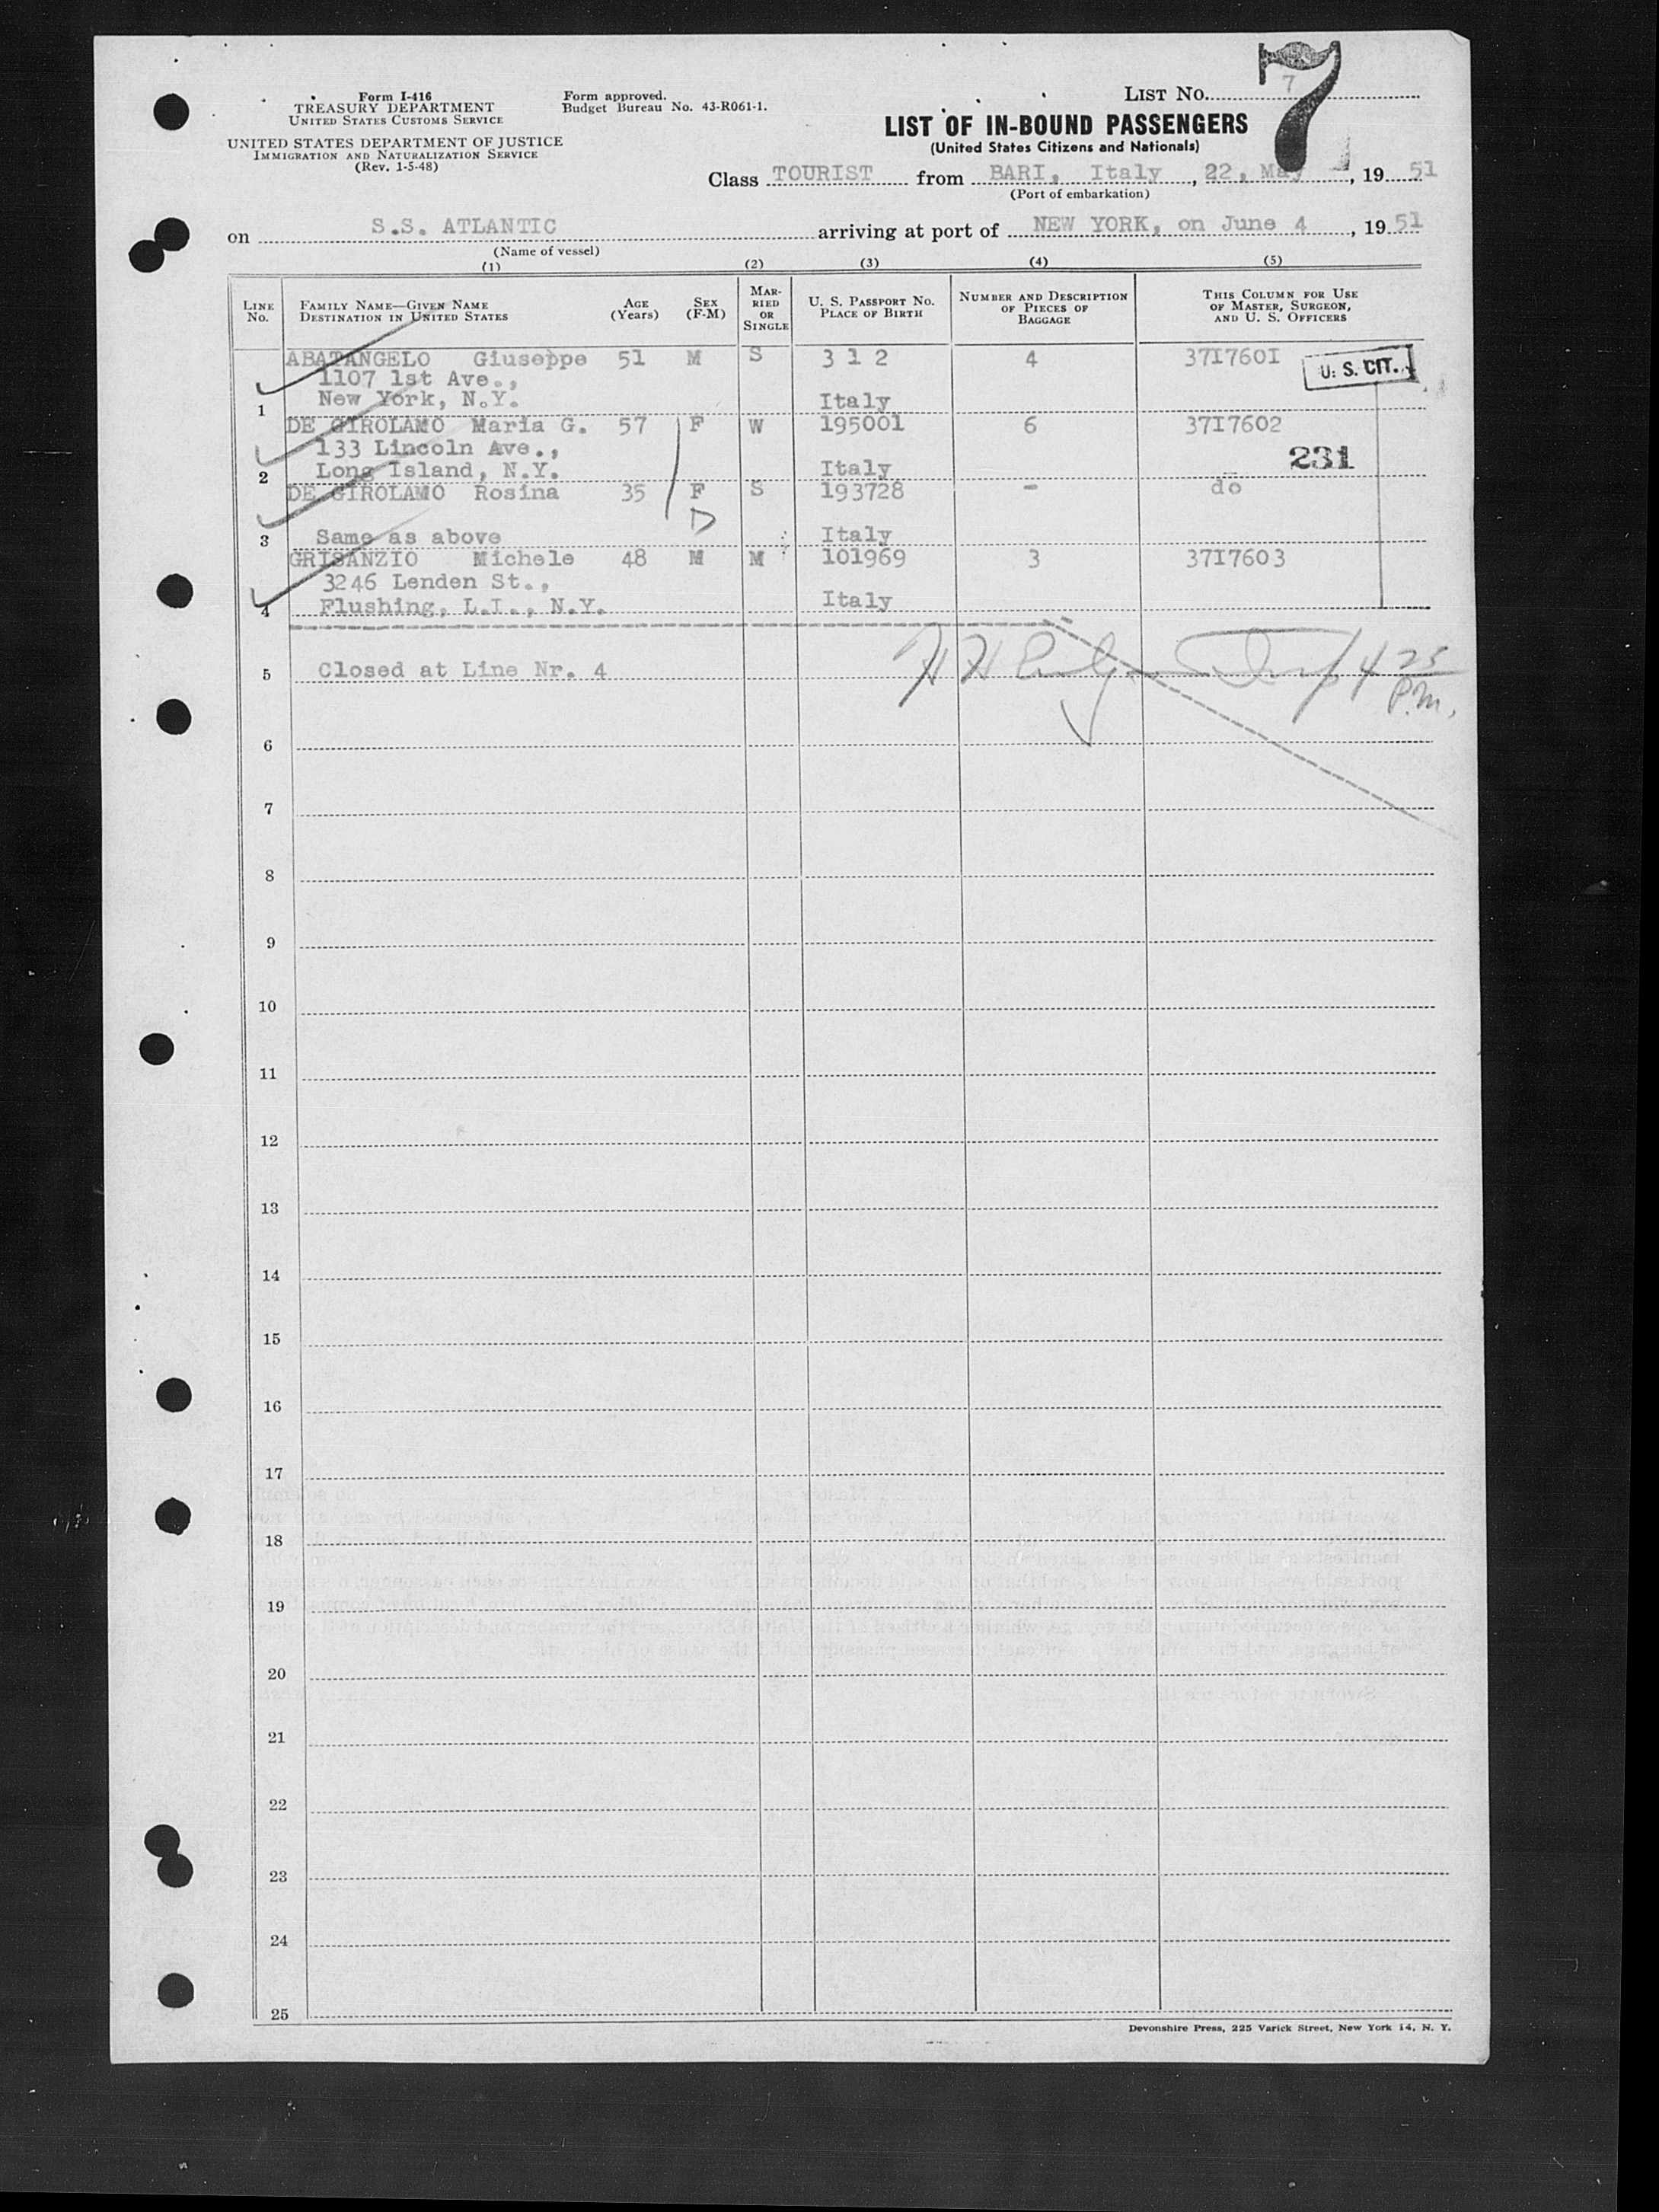 Form I-416
TREASURY DEPARTMENT
UNITED STATES CUSTOMS SERVICE
UNITED STATES DEPARTMENT OF JUSTICE
IMMIGRATION AND NATURALIZATION SERVICE
(Rev. 1-5-48)
Form approved.
Budget Bureau No. 43-R061-1.
LIST NO. 7
7
LIST OF IN-BOUND PASSENGERS
(United States Citizens and Nationals)
Class TOURIST from BARI, Italy, 22, May, 1951
(Port of embarkation)
on S.S. ATLANTIC arriving at port of NEW YORK, on June 4, 1951
(Name of vessel)
(1) (2) (3) (4) (5)
LINE No. FAMILY NAME—GIVEN NAME DESTINATION IN UNITED STATES AGE (Years) SEX (F-M) MARRIED OR SINGLE U. S. PASSPORT NO. PLACE OF BIRTH NUMBER AND DESCRIPTION OF PIECES OF BAGGAGE THIS COLUMN FOR USE OF MASTER, SURGEON, AND U. S. OFFICERS
ABATANGELO Giuseppe 51 M S 3 1 2 4 37I760I U. S. CIT.
1107 1st Ave.,
1 New York, N.Y. Italy
DE GIROLAMO Maria G. 57 F W 195001 6 37I7602
133 Lincoln Ave., 231
2 Long Island, N.Y. Italy
DE GIROLAMO Rosina 35 F S 193728 - do
D
3 Same as above Italy
GRISANZIO Michele 48 M M 101969 3 37I7603
3246 Lenden St.,
4 Flushing, L.I., N.Y. Italy
5 Closed at Line Nr. 4
4 25 P.M.
6
7
8
9
10
11
12
13
14
15
16
17
18
19
20
21
22
23
24
25
Devonshire Press, 225 Varick Street, New York 14, N. Y.